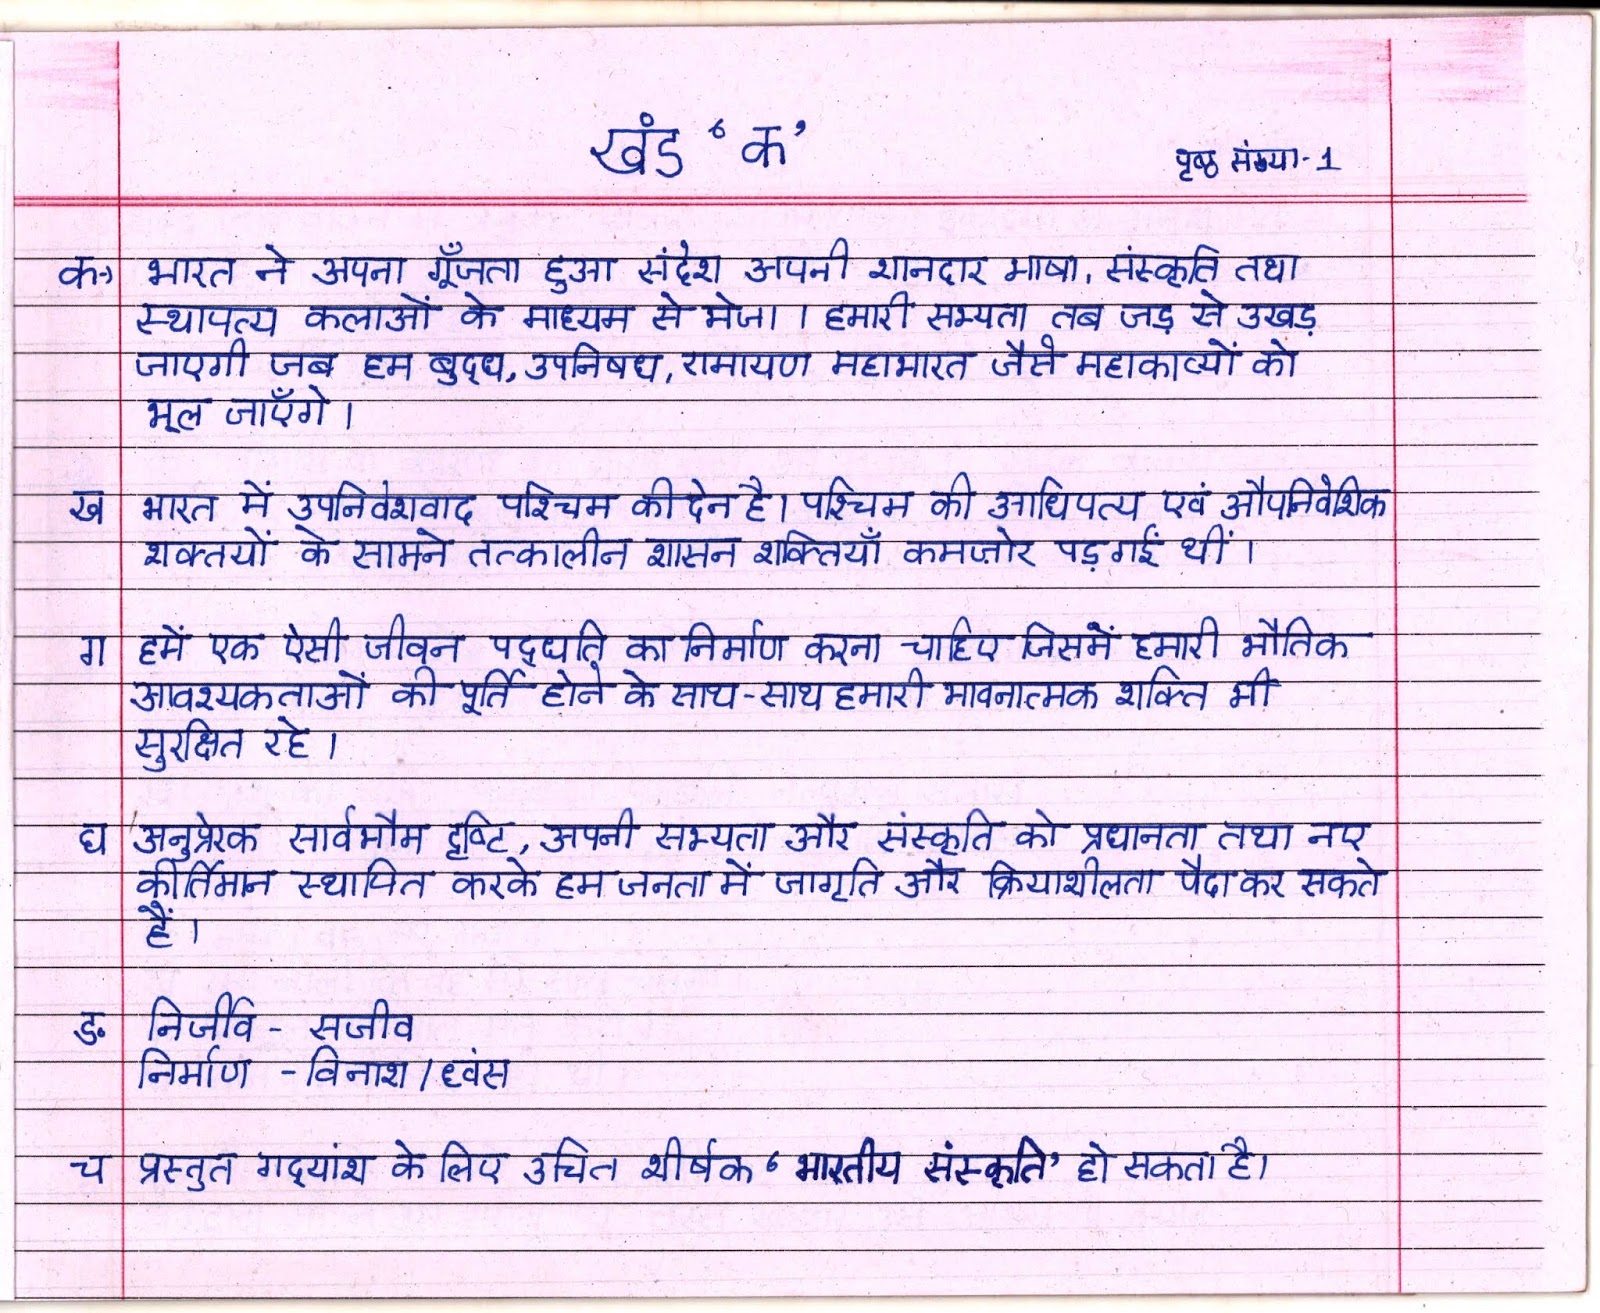 खंड ‘क’
पृष्ठ संख्या-1
क→ भारत ने अपना गूँजता हुआ संदेश अपनी शानदार भाषा, संस्कृति तथा
स्थापत्य कलाओं के माध्यम से भेजा। हमारी सभ्यता तब जड़ से उखड़
जाएगी जब हम बुद्ध, उपनिषध, रामायण महाभारत जैसे महाकाव्यों को
भूल जाएँगे।
ख भारत में उपनिवेशवाद पश्चिम की देन है। पश्चिम की आधिपत्य एवं औपनिवेशिक
शक्तयों के सामने तत्कालीन शासन शक्तियाँ कमज़ोर पड़ गईं थीं।
ग हमें एक ऐसी जीवन पद्धति का निर्माण करना चाहिए जिसमें हमारी भौतिक
आवश्यकताओं की पूर्ति होने के साथ-साथ हमारी भावनात्मक शक्ति भी
सुरक्षित रहे।
घ अनुप्रेरक सार्वभौम दृष्टि, अपनी सभ्यता और संस्कृति को प्रधानता तथा नए
कीर्तिमान स्थापित करके हम जनता में जागृति और क्रियाशीलता पैदा कर सकते
हैं।
ङ निर्जीव - सजीव
निर्माण - विनाश/ध्वंस
च प्रस्तुत गद्यांश के लिए उचित शीर्षक ‘भारतीय संस्कृति’ हो सकता है।